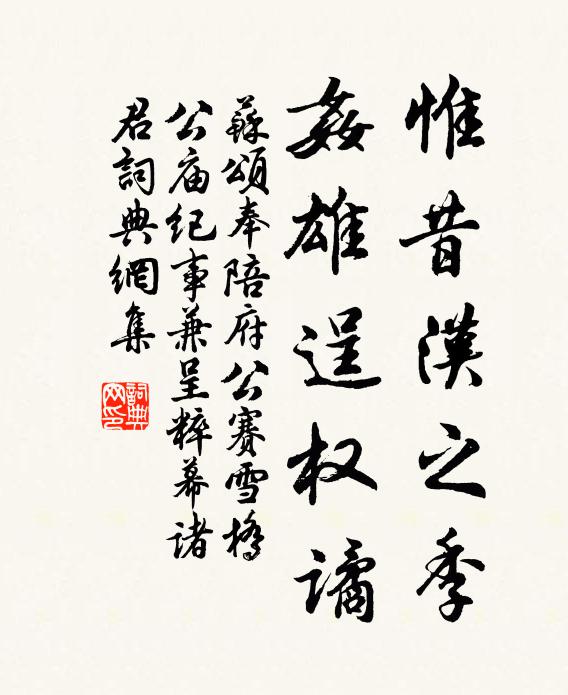 惟昔漢之季
姦雄逞权譎
蘇頌奉陪府公賽雪橋
公庙纪事兼呈粹幕诸
君詞典網集
詞典网印